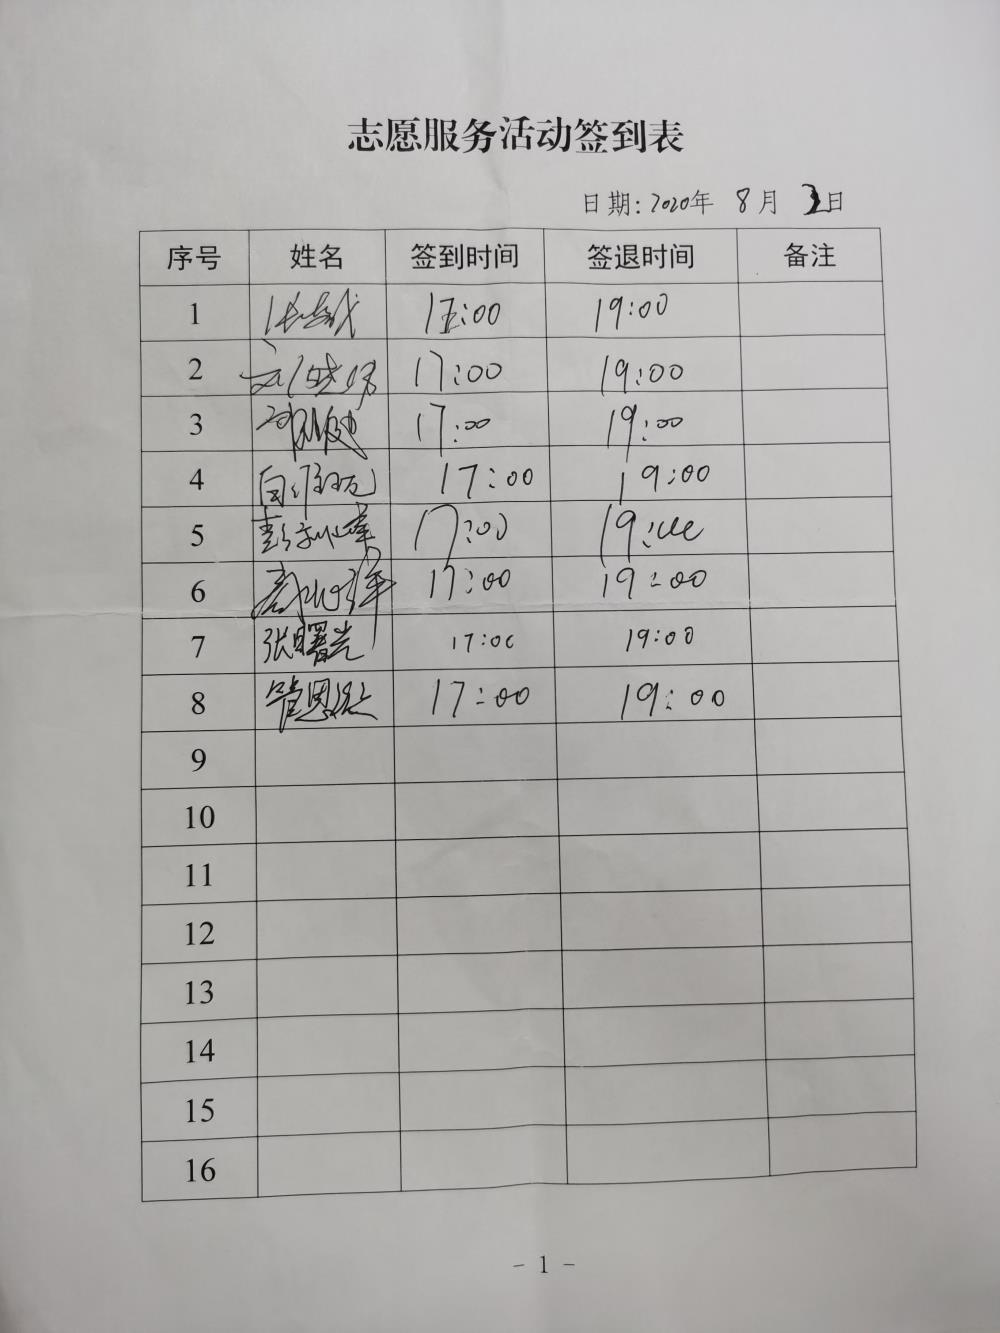 志愿服务活动签到表
日期:2020年 8月 日
序号 姓名 签到时间 签退时间 备注
1 17:00 19:00
2 17:00 19:00
3 17:00 19:00
4 17:00 19:00
5 17:00 19:00
6 17:00 19:00
7 张曙光 17:00 19:00
8 管恩 17:00 19:00
9
10
11
12
13
14
15
16
- 1 -